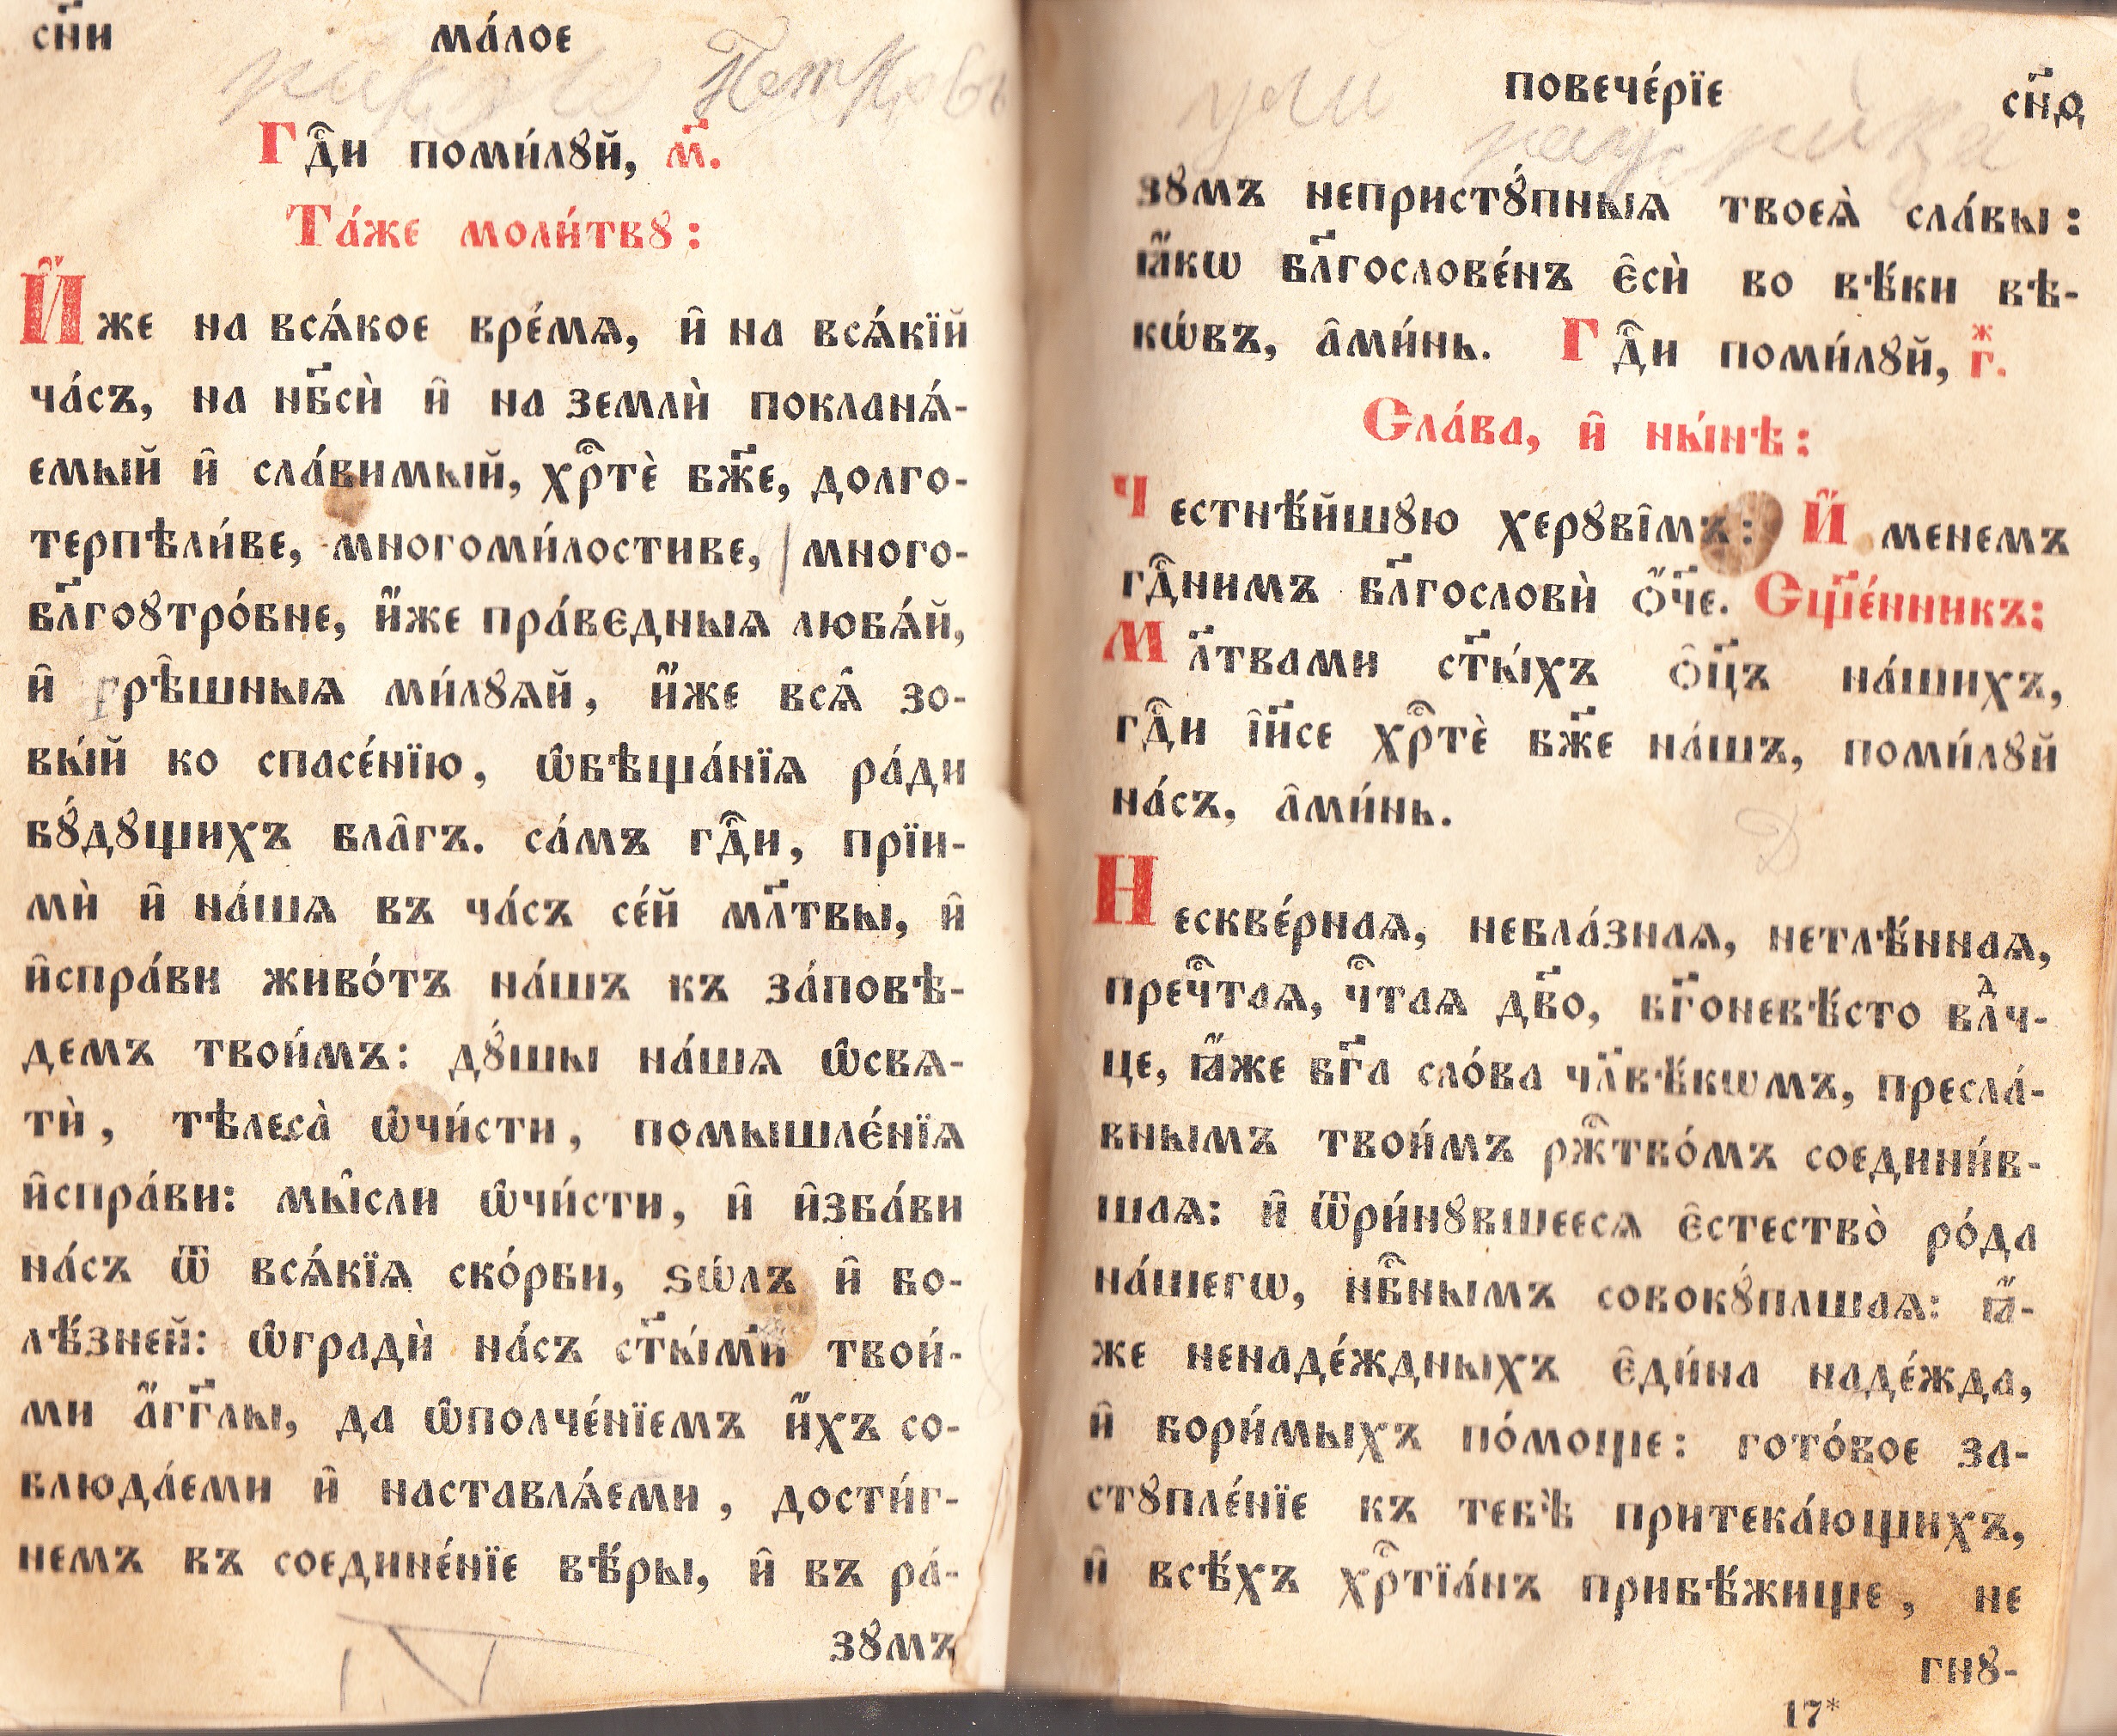 сн҃и
ма́лое
Петковъ
Гдⷭ҇и поми́лꙋй, м҃.
Та́же моли́твꙋ:
И҆́же на всѧ́кое вре́мѧ, и҆̑ на всѧ́кїй
ча́съ, на нб҃сѝ и҆̑ на землѝ покланѧ́-
емый и҆̑ сла́вимый, хрⷭ҇тѐ бж҃е, долго-
терпѣли́ве, многоми́лостиве, много-
бл҃гоꙋтро́бне, и҆́же пра́вєдныѧ любѧ́й,
и҆̑ грѣ̑шныѧ ми́лꙋѧй, и҆́же всѧ̑ зо-
вы́й ко спасе́нїю, ѡ҆̑бѣща́нїѧ ра́ди
бꙋ́дꙋщихъ бла̑гъ. са́мъ гдⷭ҇и, прїи-
мѝ и҆̑ на́шѧ въ ча́съ се́й мл҃твы, и҆̑
и҆̑спра́ви живо́тъ на́шъ къ за́повѣ-
демъ твои́мъ: дꙋ́шы на́шѧ ѡ҆̑свѧ-
тѝ, тѣлеса̀ ѡ҆̑чи́сти, помышлє́нїѧ
и҆̑спра́ви: мы̑сли ѡ҆̑чи́сти, и҆̑ и҆̑зба́ви
на́съ ѿ всѧ́кїѧ ско́рби, ѕѡ́лъ и҆̑ бо-
лѣ́зней: ѡ҆̑градѝ на́съ ст҃ы́ми твои́-
ми а҆́гг҃лы, да ѡ҆̑полче́нїемъ и҆́хъ со-
блюда́еми и҆̑ наставлѧ́еми, дости́г-
немъ въ соедине́нїе вѣ́ры, и҆̑ въ ра́-
зꙋмъ
повече́рїе
сн҃ѳ
зꙋмъ непристꙋ́пныѧ твоеѧ̀ сла́вы:
ꙗ҆́кѡ бл҃гослове́нъ є҆̑сѝ во вѣ́ки вѣ-
кѡ́въ, а҆̑ми́нь. Гдⷭ҇и поми́лꙋй, г҃ⷤ.
Сла́ва, и҆̑ ны́нѣ:
Честнѣ́йшꙋю херꙋві̑мъ: И҆́менемъ
гдⷭ҇нимъ бл҃гословѝ ѻ҆́ч҃е. Сщ҃е́нникъ:
Мл҃твами ст҃ы́хъ ѻ҆̑ц҃ъ на́шихъ,
гдⷭ҇и і҆̑и҃се хрⷭ҇тѐ бж҃е на́шъ, поми́лꙋй
на́съ, а҆̑ми́нь.
Нескве́рнаѧ, небла́знаѧ, нетлѣ́ннаѧ,
пречⷭ҇таѧ, чⷭ҇таѧ дв҃о, бг҃оневѣ́сто влⷣч-
це, ꙗ҆́же бг҃а сло́ва чл҃вѣ́кѡмъ, пресла́-
внымъ твои́мъ ржⷭ҇тво́мъ соедини́в-
шаѧ: и҆̑ ѿри́нꙋвшеесѧ є҆̑стество̀ ро́да
на́шегѡ, нбⷭ҇нымъ совокꙋ́плшаѧ: ꙗ҆́-
же ненаде́ждныхъ є҆̑ди́на наде́жда,
и҆̑ бори́мыхъ по́моще: гото́вое за-
стꙋпле́нїе къ тебѣ̀ притека́ющихъ,
и҆̑ всѣ́хъ хрⷭ҇тїа́нъ прибѣ́жище, не
гнꙋ-
17*